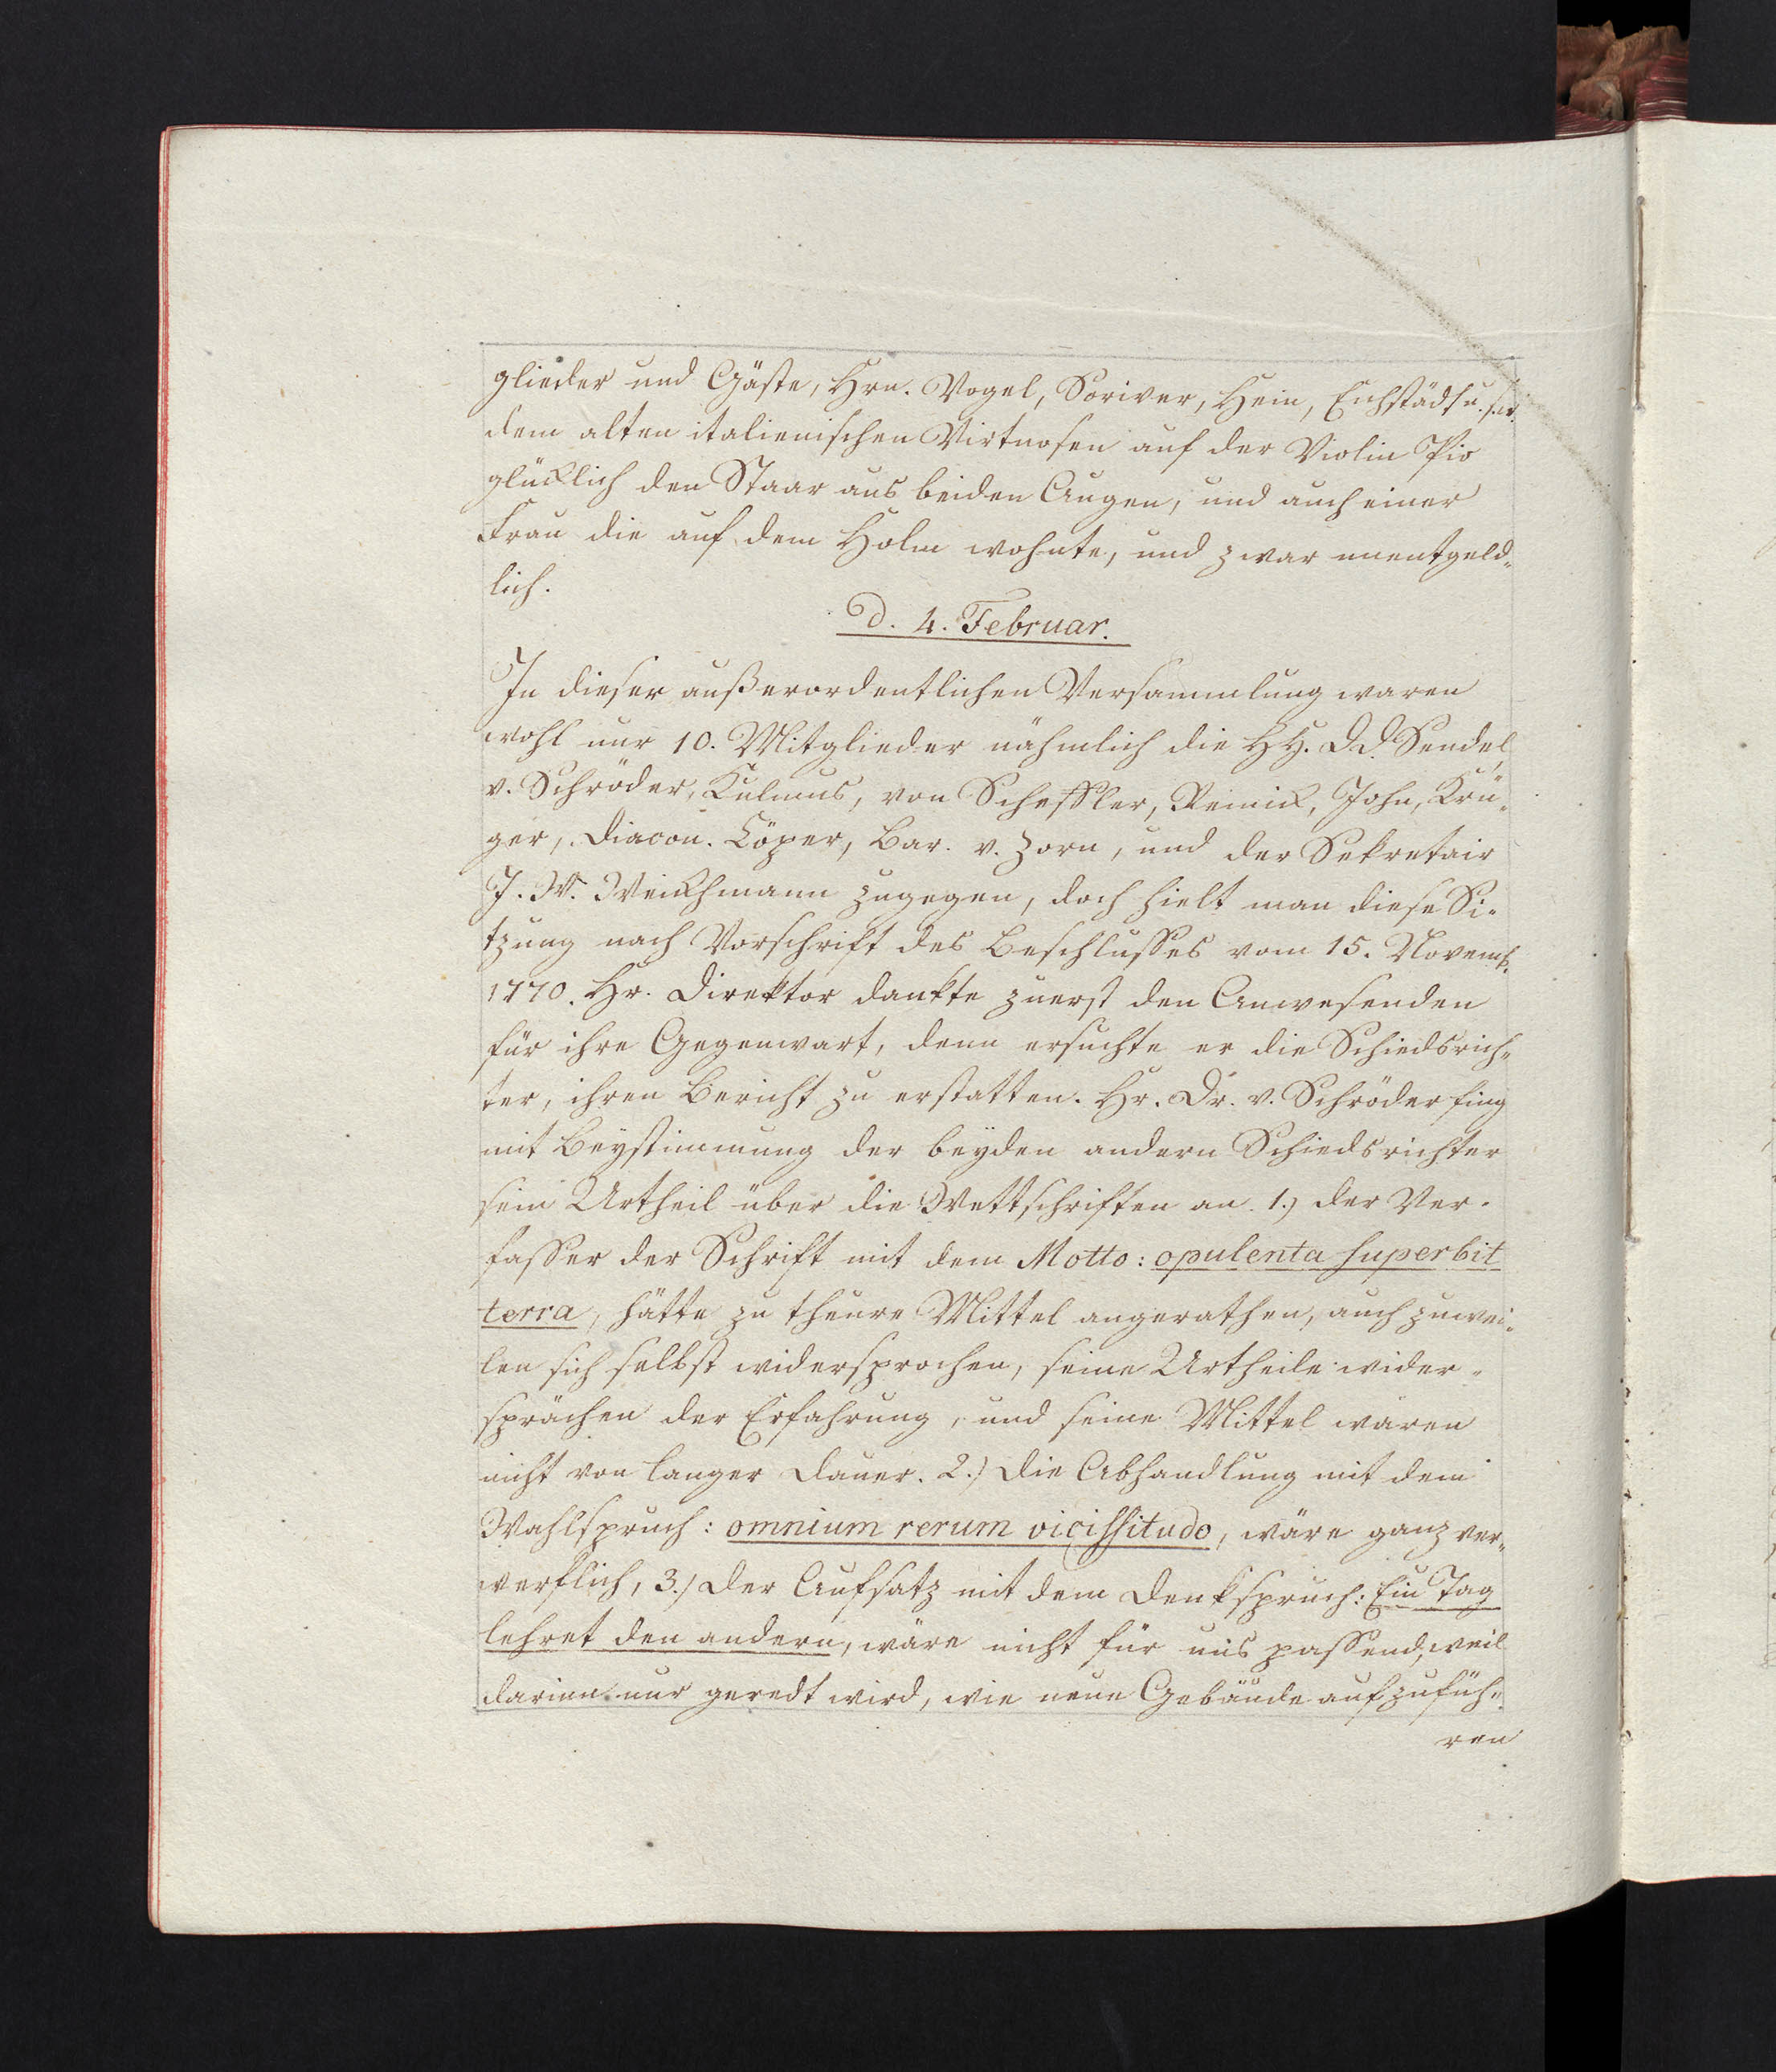 glieder und Gäste, Hrn. Vogel, Scriver, Hein, Eichstädt u.
dem alten italienischen Virtuosen auf der Violin Pio
glücklich den Staar aus beiden Augen, und auch einer
Frau die auf dem Holm wohnte, und zwar unentgeld-
lich.
d. 4. Februar.
In dieser außerordentlichen Versammlung waren
wohl nur 10. Mitglieder nähmlich die HH. DD. Sendel,
v. Schröder, Kulmus, von Scheffler, Reinick, John, Krü-
ger, Diacon. Löper, Bar. v. Zorn, und der Sekretair
J. W. Weickhmann zugegen, doch hielt man diese Si-
tzung nach Vorschrift des Beschlusses vom 15. Novemb.
1770. Hr. Direktor dankte zuerst den Anwesenden
für ihre Gegenwart, denn ersuchte er die Schiedsrich-
ter, ihren Bericht zu erstatten. Hr. Dr. v. Schröder fing
mit Beystimmung der beyden andern Schiedsrichter
sein Urtheil über die Wettschriften an. 1.) der Ver-
fasser der Schrift mit dem Motto: opulenta superbit
terra, hätte zu theure Mittel angerathen, auch zuwei-
len sich selbst widersprochen, seine Urtheile wider-
sprächen der Erfahrung, und seine Mittel wären
nicht von langer Dauer. 2.) Die Abhandlung mit dem
Wahlspruch: omnium rerum vicissitudo, wäre ganz ver-
werflich, 3.) Der Aufsatz mit dem Denkspruch: Ein Tag
lehret den andern, wäre nicht für uns passend, weil
darinn nur geredt wird, wie neue Gebäude aufzufüh-
ren